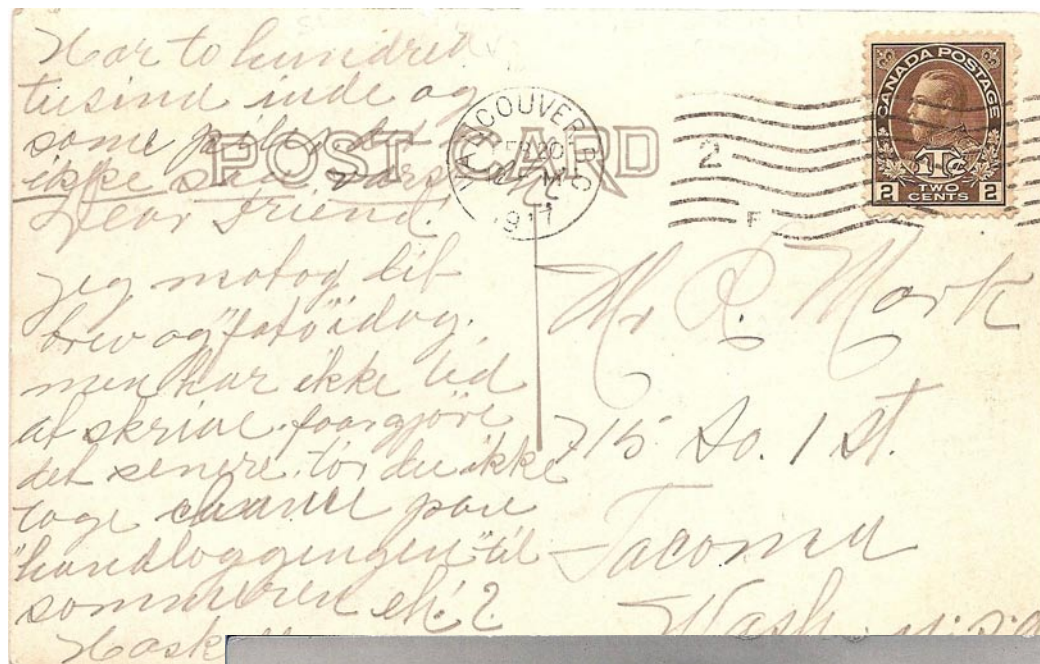 Har to hundred
tusind inde og
some
ikke
Dear Friend!
Jeg motog dit
brev og "foto" idag.
men har ikke tid
at skrive. faar gjöre
det senere. tör du ikke
tage chance paa
"handloggingen" til
sommeren eh!?
Hosk
POST CARD
VANCOUVER B.C.
FEB 20
191
2
F
CANADA POSTAGE
1Tc
2 TWO CENTS 2
Mr R. Mork
715 So. 1 st.
Tacoma
Wash. U.S.A